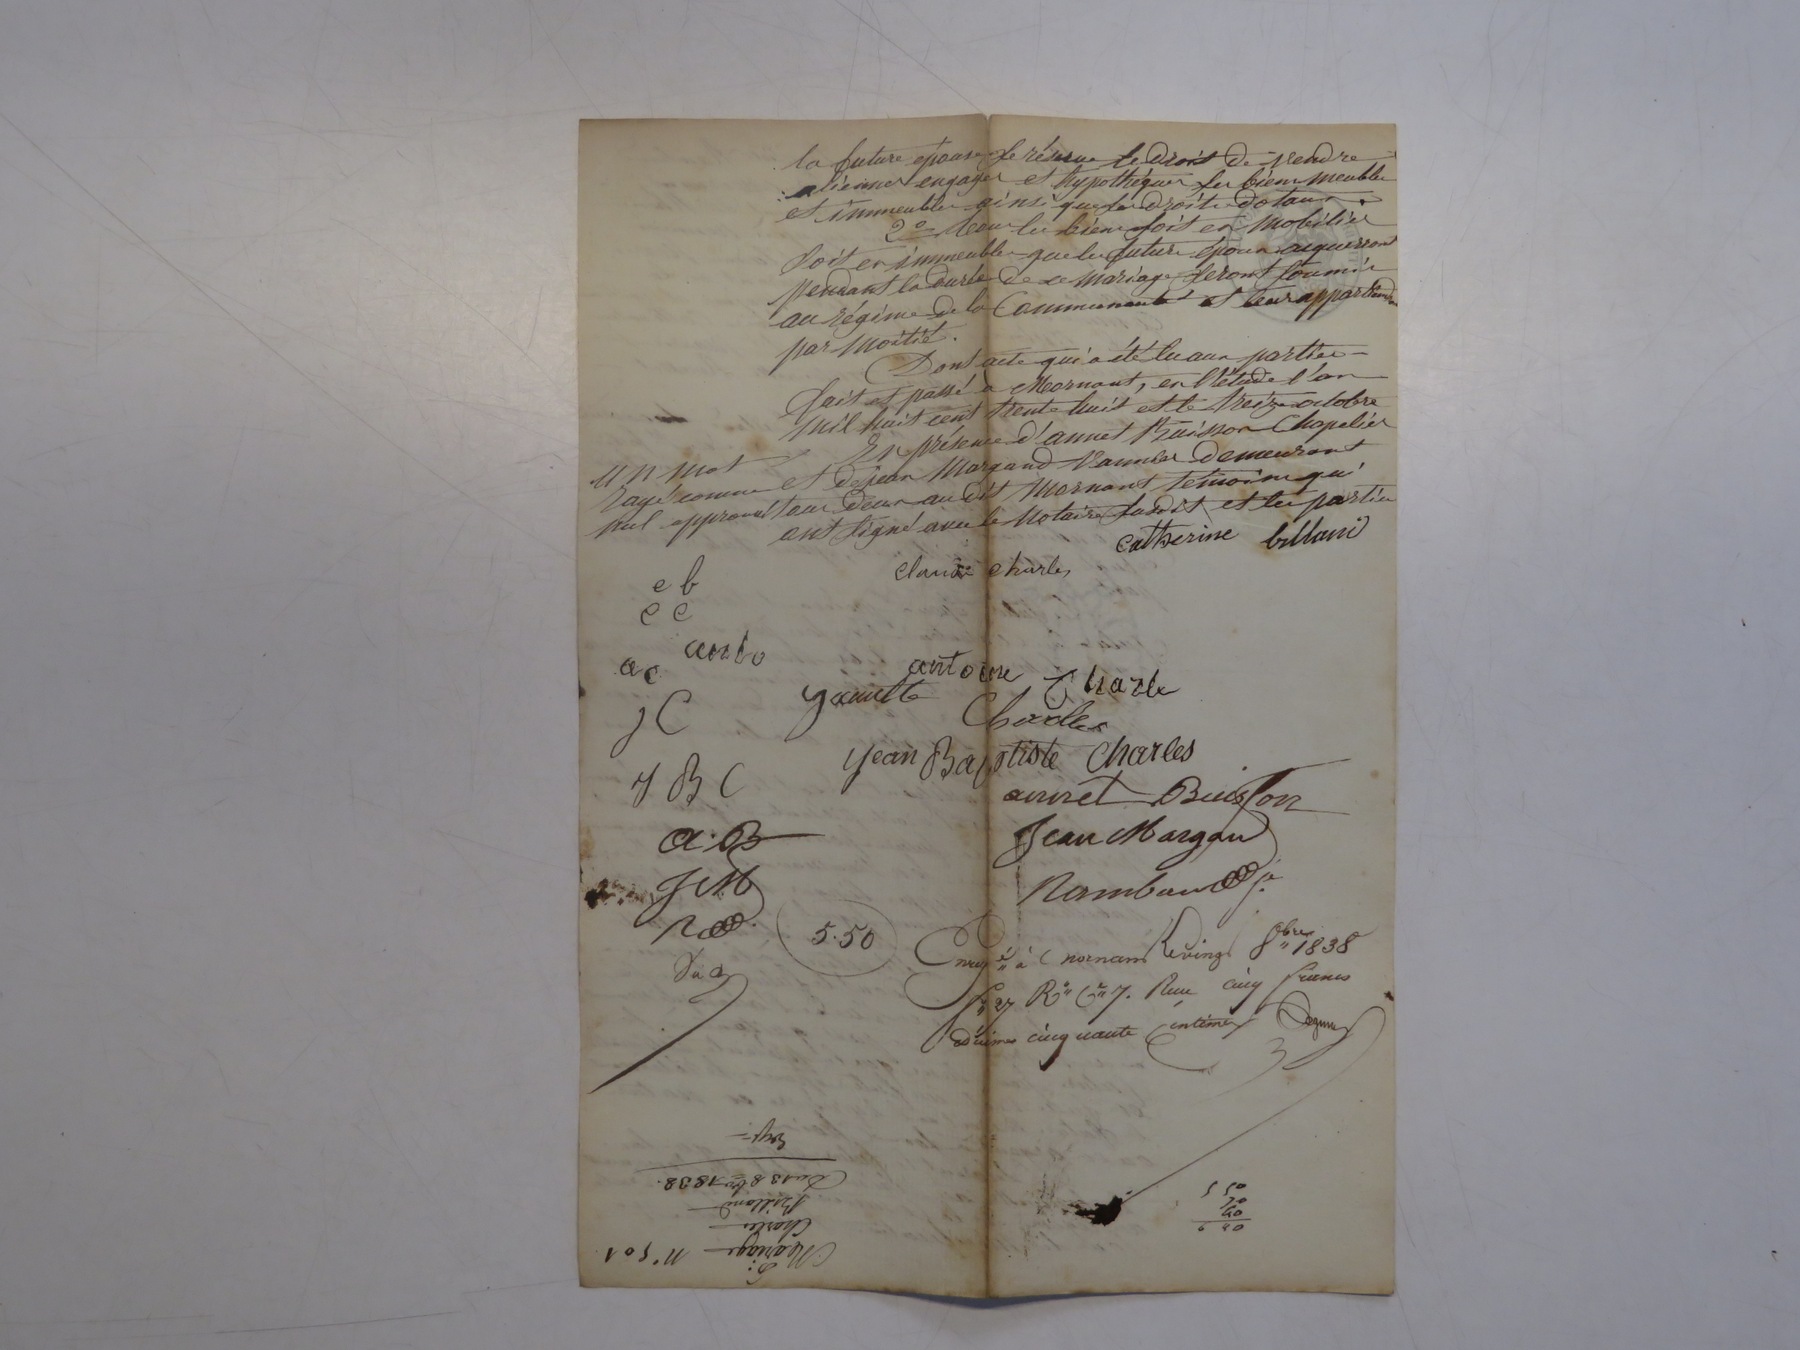 la future épouse se réserve le droit de vendre
aliener engager et hypothéquer ses biens meubles
et immeubles ainsi que ses droits dotaux.
2° tous les biens soit en mobilier
soit en immeubles que les future époux acquerront
pendant la durée de ce mariage seront soumis
au régime de la Communauté et leur appartiendra
par moitié.
Dont acte qui a été lu aux parties
fait et passé à Mornant, en l'étude l'an
mil huit cent trente huit et le treize octobre
En présence d'annet Buisson Chapelier
et de jean Margand Vannier demeurant
tous deux au dit Mornant témoins qui
ont signé avec le Notaire susdit et les parties
un mot
rayé comme
nul approuvé
catherine billand
claude charles
e b
c c
a c
antoine Charle
j C
Charles
J B C
jean Baptiste Charles
annet Buisson
a. B
Jean Margand
J M
5.50
Enreg. à Mornant le vingt 8bre 1838
f° 27 R° C. 7. Reçu cinq francs
décimes cinquante Centimes
5 50
70
40
6 40
Mariage N° 501
Charles
Billand
Du 13 8bre 1838.